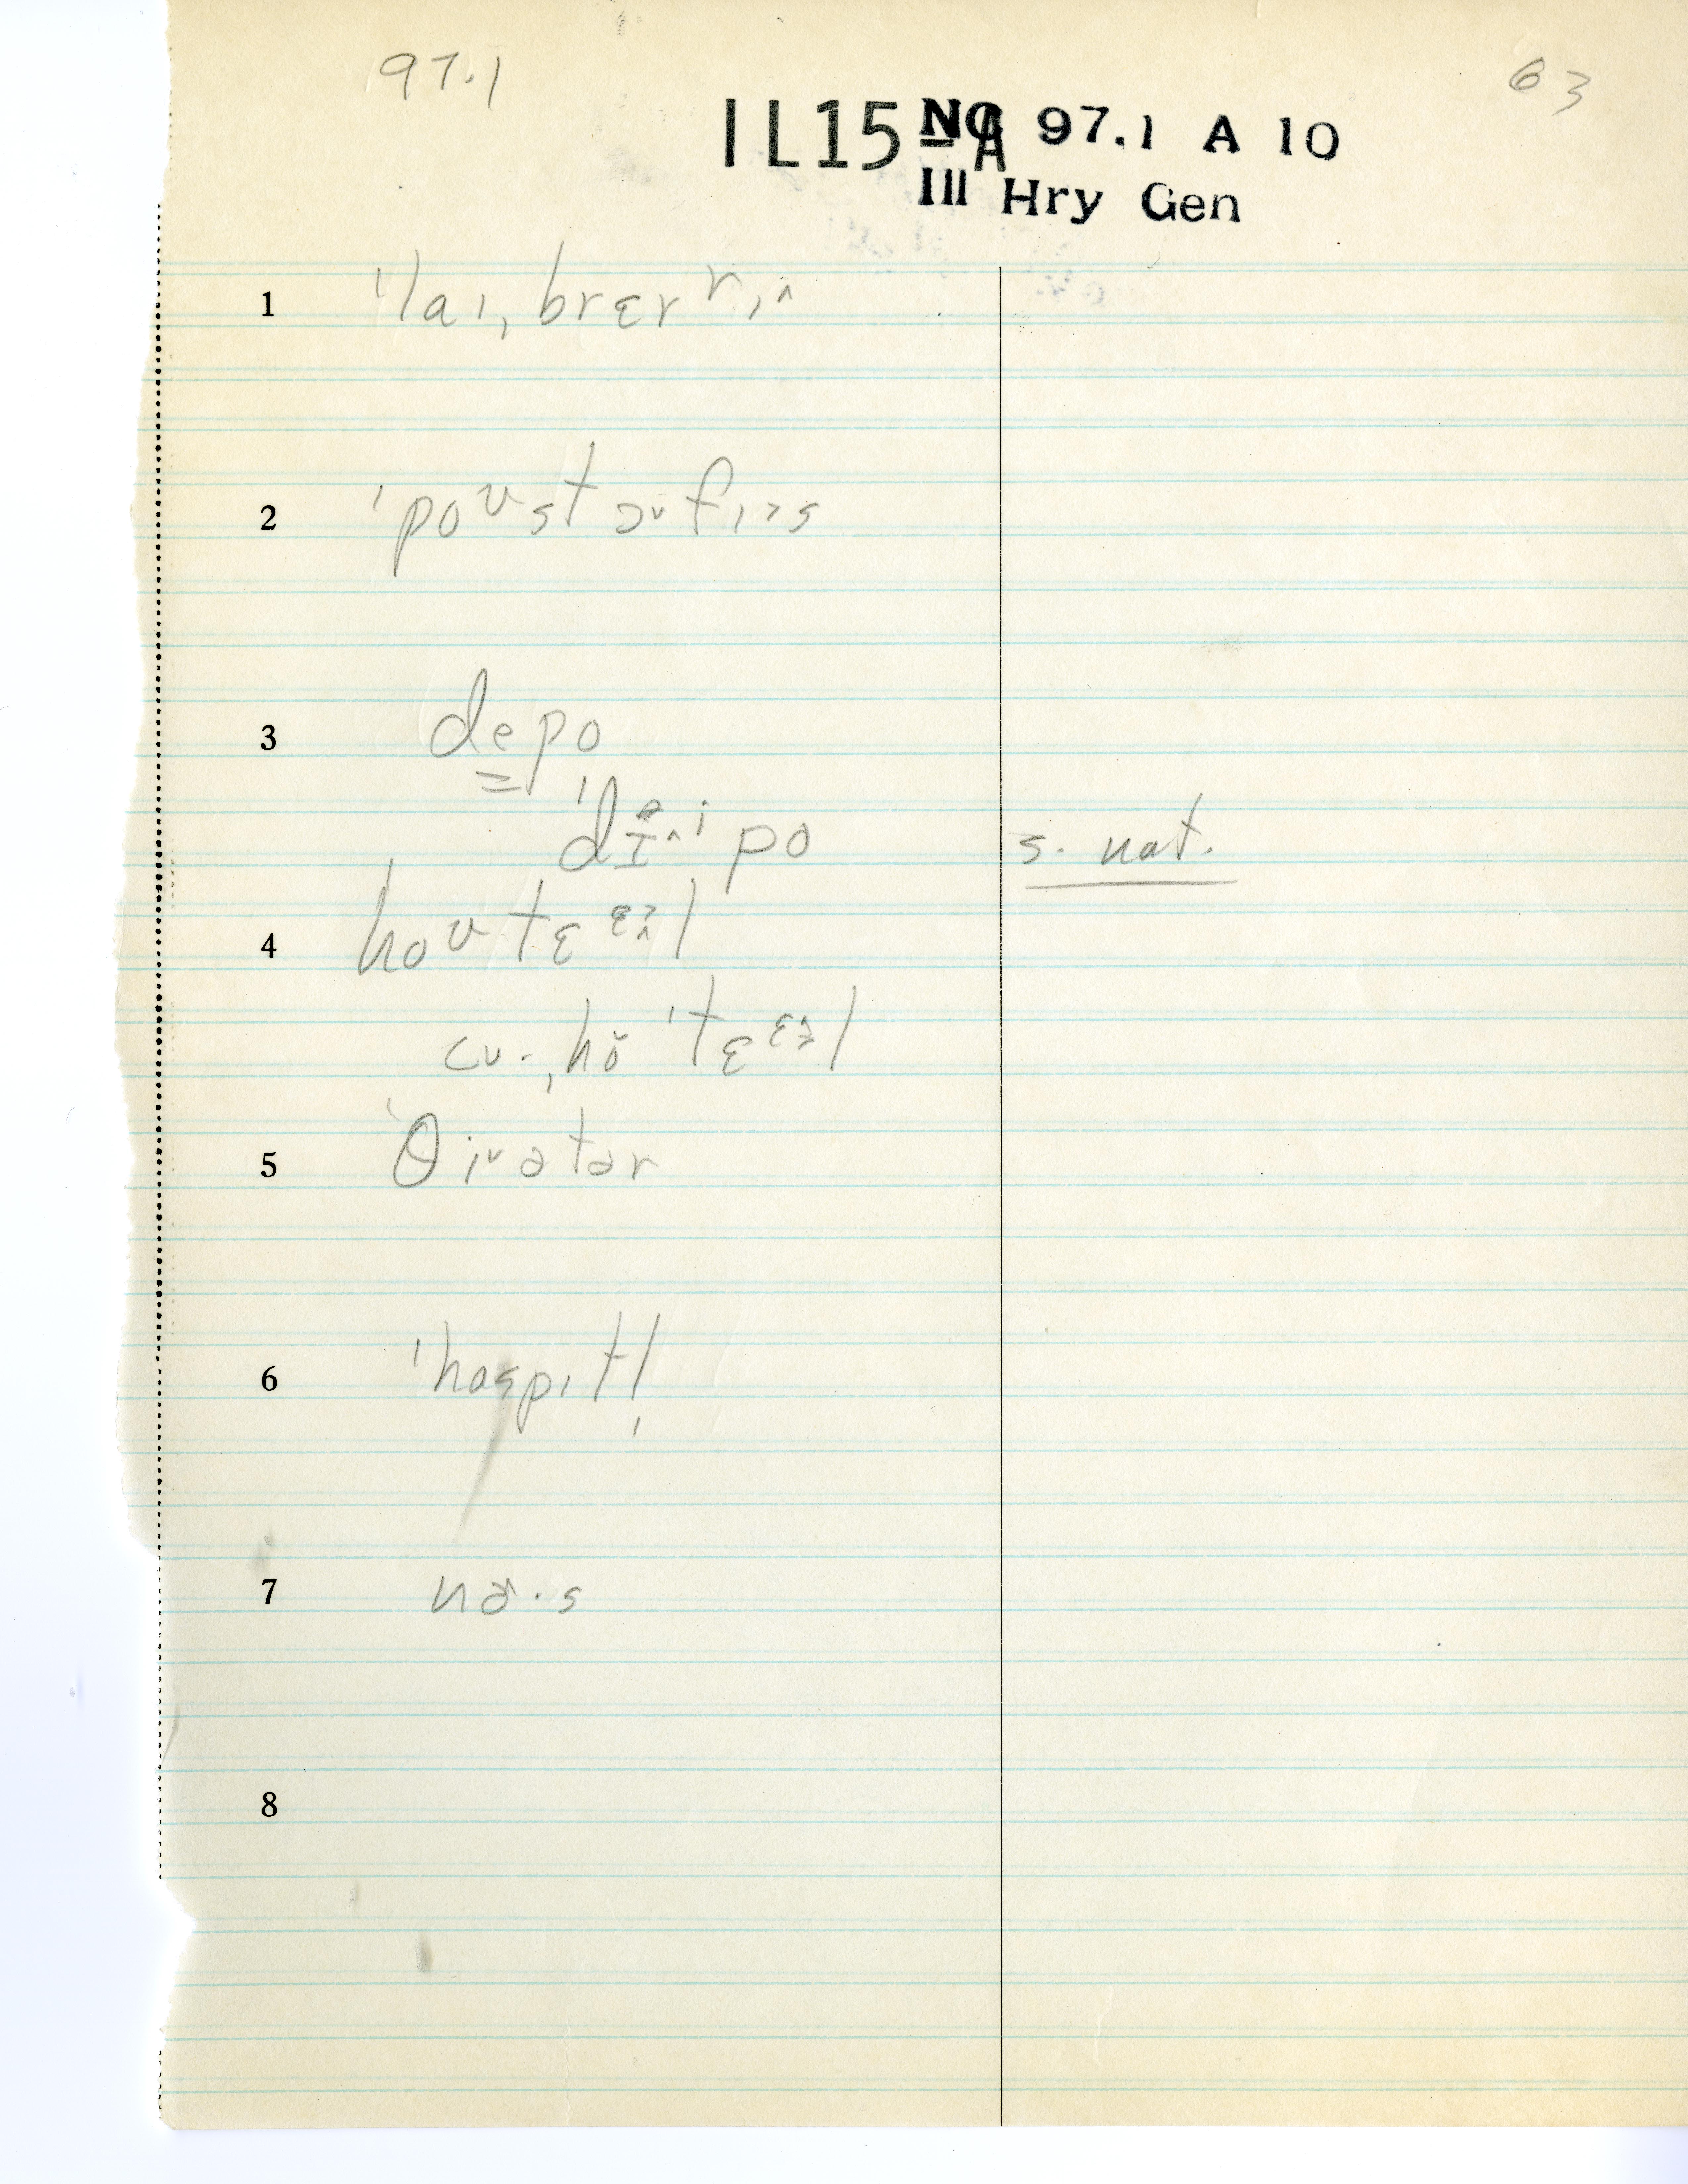 97.1
63
IL15 NC A 97.1 A 10
Ill Hry Gen
1 ˈlaɪˌbrɛrʳɪ^
2 ˈpoᶷstəᵛfɪ˃s
3 depo
ˈdɪ^ⁱpo s. nat.
4 hoᶷˈtɛᵋl
cv. ˌhŏˈtɛᵋl
5 ˈθiᵛətər
6 ˈhɑspɪtl̩
7 nɝ·s
8